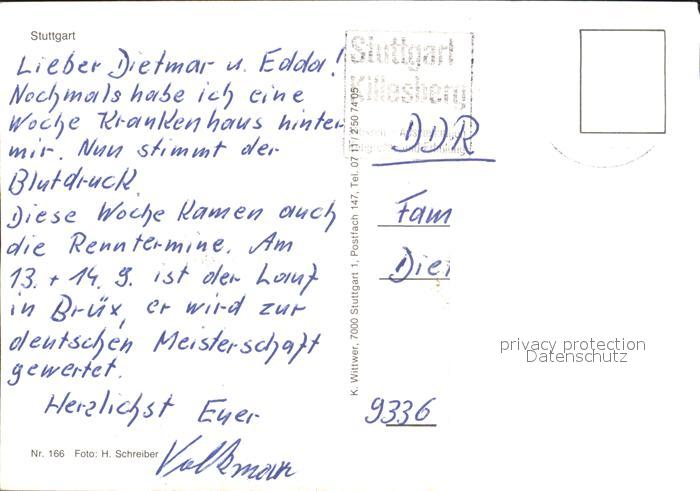 Stuttgart
Lieber Dietmar u. Edda!
Nochmals habe ich eine
Woche Krankenhaus hinter
mir. Nun stimmt der
Blutdruck
Diese Woche kamen auch
die Renntermine. Am
13. + 14. 9. ist der Lauf
in Brüx, er wird zur
deutschen Meisterschaft
gewertet.
Herzlichst Euer
Volkmar
Nr. 166 Foto: H. Schreiber
K. Wittwer, 7000 Stuttgart 1, Postfach 147, Tel. 07 11 / 2 50 74 05
Stuttgart
Killesberg
DDR
Fam
Diet
9336
privacy protection
Datenschutz